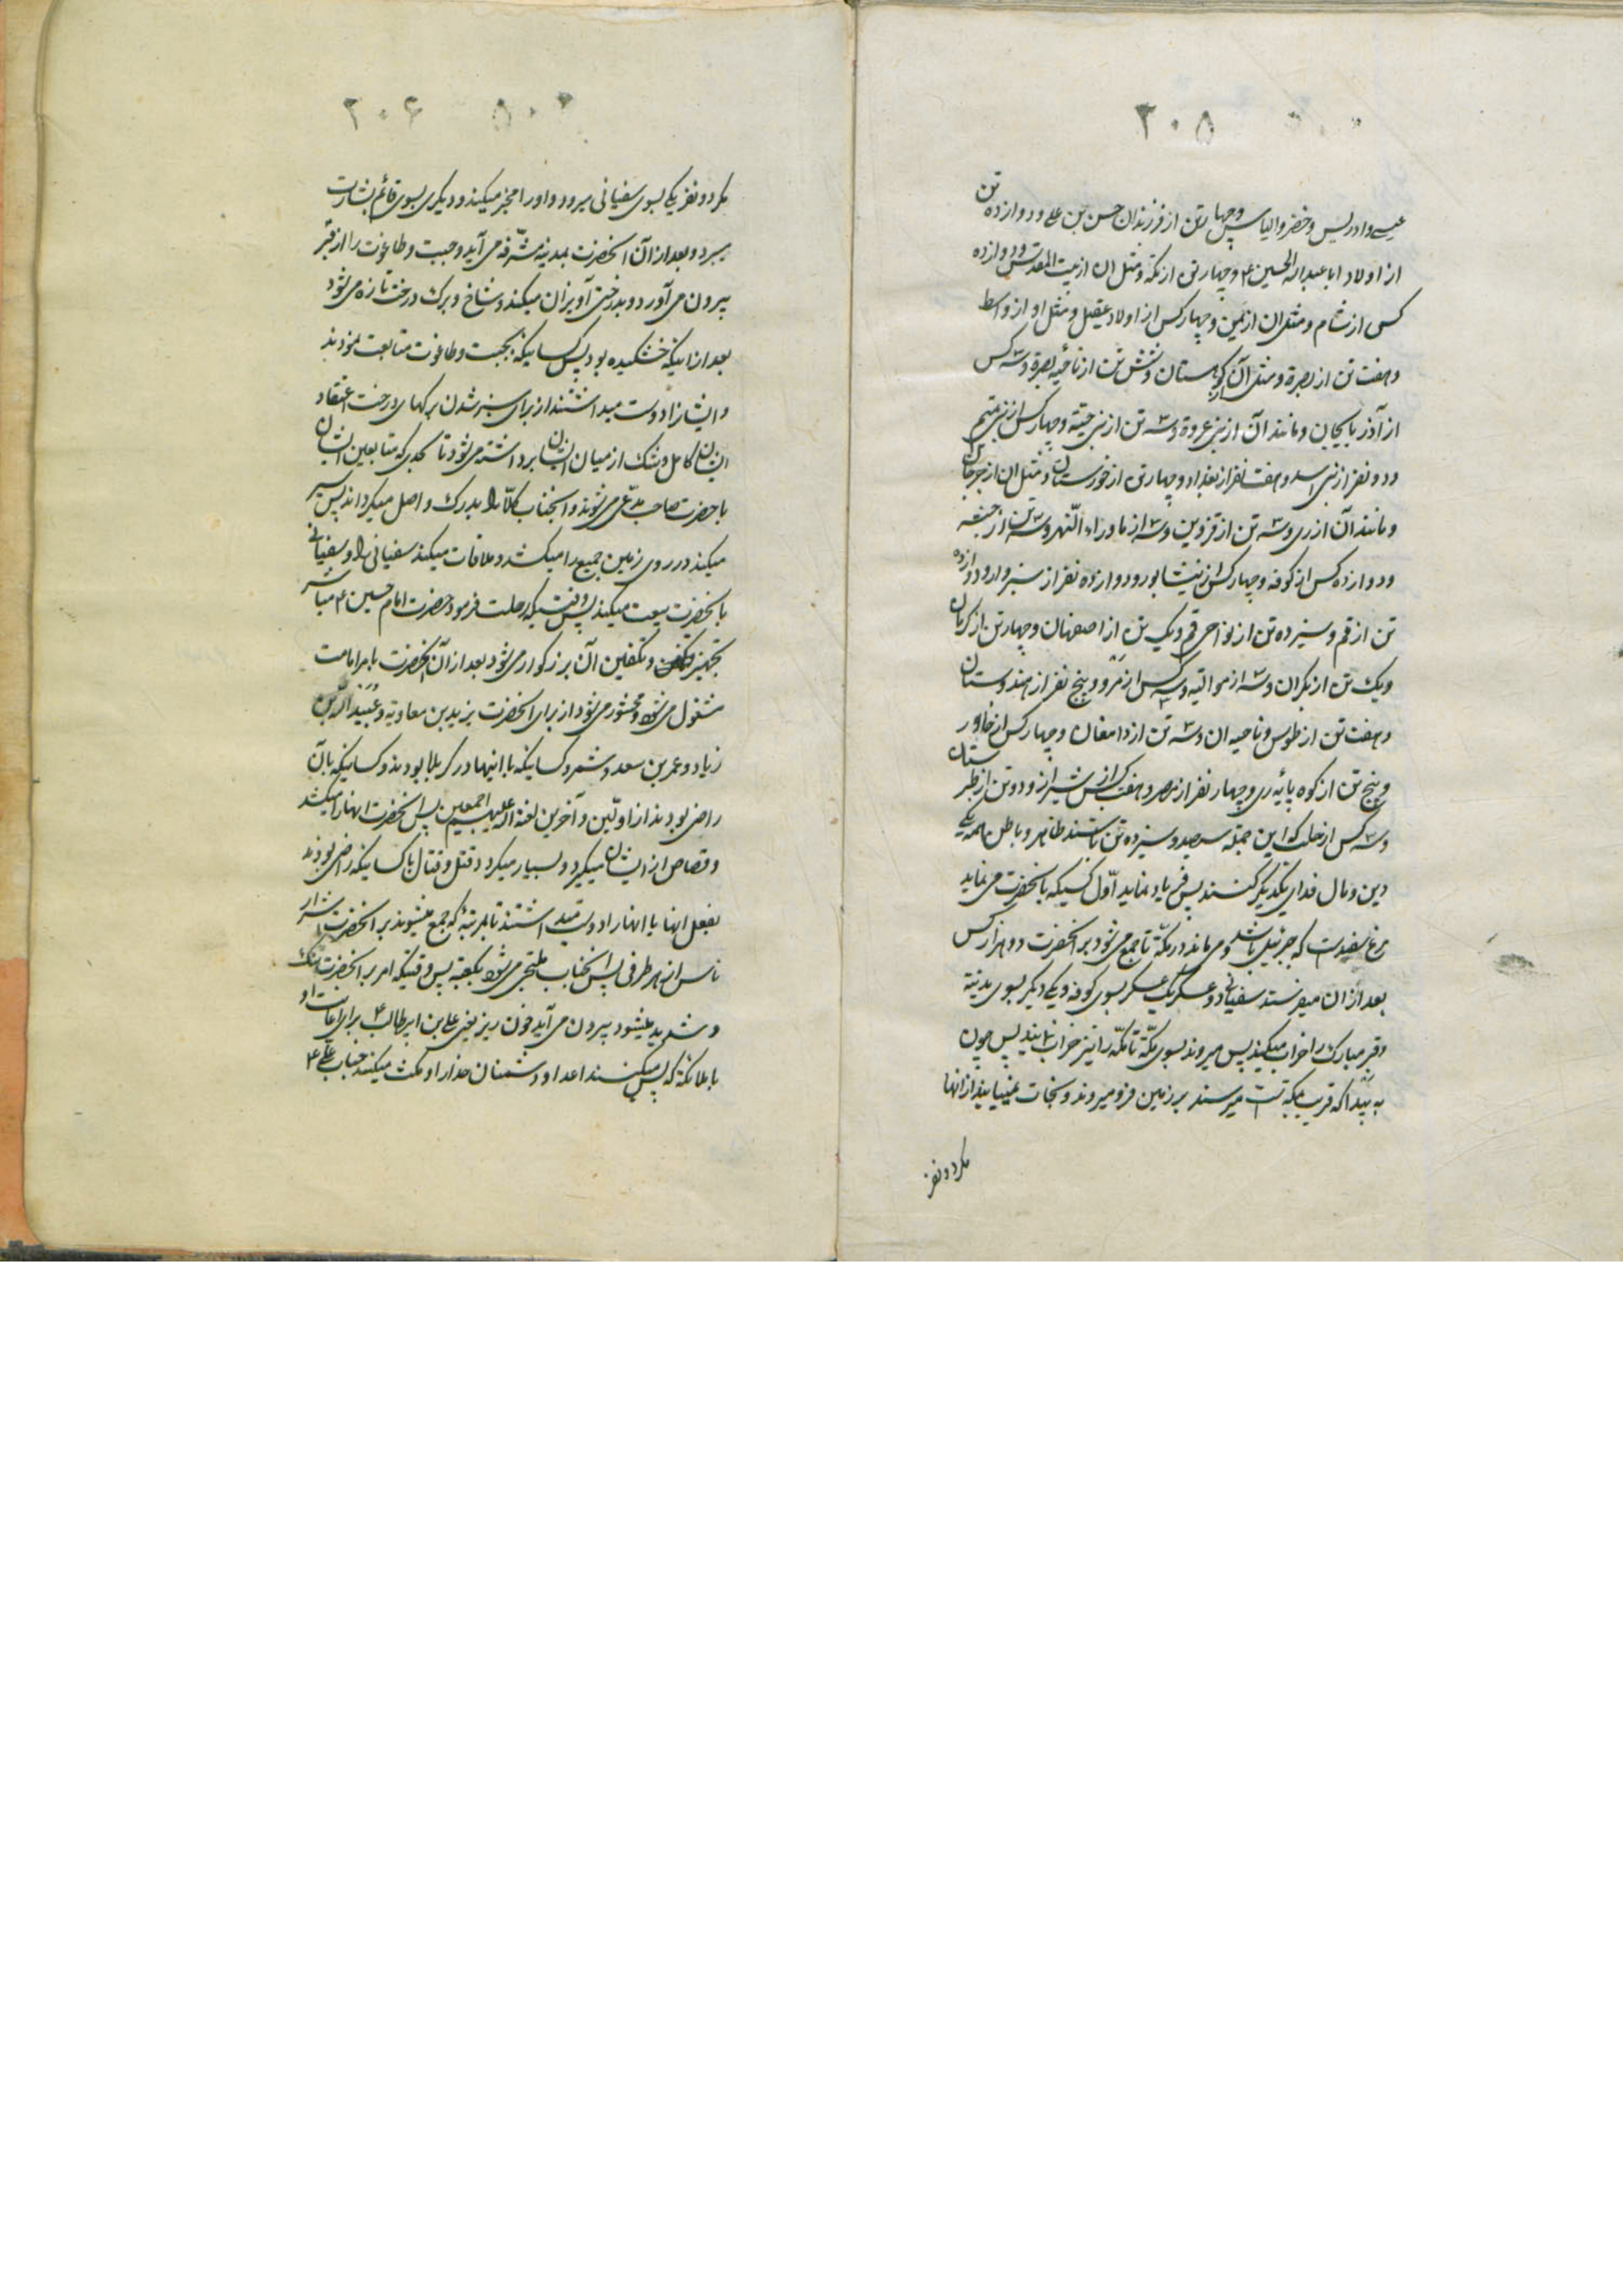 ۲۰۵
عیسی و ادریس و خضر و الیاس و چهار تن از فرزندان حسن بن علی و دوازده تن
از اولاد ابا عبدالله الحسین ۴ و چهار تن از مکه و مثل ان از بیت المقدس و دوازده
کس از شام و مثل ان از یمن و چهار کس از اولاد عقیل و مثل او از واسط
و هفت تن از بصره و مثل آن از کوهستان و شش تن از ناحیه بصره و سه کس
از آذربایجان و مانند آن از بنی عروة و سه تن از بنی حیّته و چهار کس از بنی تمیم
و دو نفر از بنی اسد و هفت نفر از بغداد و چهار تن از خوزستان و مثل ان از جرجان
و مانند آن از ری و سه تن از قزوین و سه از ماوراء النهر و سه تن از حبشه
و دوازده کس از کوفه و چهار کس از نیشابور و دوازده نفر از سبزوار و دوازده
تن از قم و سیزده تن از نواحی قم و یک تن از اصفهان و چهار تن از کرمان
و یک تن از مکران و سه از موالیه و سه کس از مرو و پنج نفر از هندوستان
و هفت تن از طوس و ناحیه ان و سه تن از دامغان و چهار کس از خاور
و پنج تن از کوه پایه ری و چهار نفر از مصر و هفت کس از شیراز و دو تن از طبرستان
و سه کس از حلب که این جمله سیصد و سیزده تن باشند ظاهر و باطن همه یکی
دین و مال فدای یکدیگر کنند پس فریاد نماید اوّل کسیکه بانحضرت می نماید
مرغ سفیدست که جبرئیل باشد و می ماند در مکّه تا جمع می شود بر انحضرت ده هزار کس
بعد از ان میفرستد سفیانی دو عسکر یک عسکر بسوی کوفه و یکی دیگر بسوی مدینه
و قبر مبارک را خراب میکنند پس میروند بسوی مکّه تا مکّه را نیز خراب نمایند پس چون
به بیدا که قریب بمکّه است میرسند بر زمین فرو میروند و نجات نمییابند از انها
مکر دو نفر
۵۰۲ ۲۰۶
مکر دو نفر یکی بسوی سفیانی میرود و او را مخبر میکند و دیکری بسوی قائم بشارت
میبرد و بعد از آن انحضرت بمدینه مشرّفه می آید و جبت و طاغوت را از قبر
بیرون می آورد و بدرختی آویزان میکند و شاخ و برک درخت تازه می شود
بعد از اینکه خشکیده بود پس کسانیکه بجبت و طاغوت متابعت نمودند
و ایشانرا دوست میداشتند از برای سبز شدن برکهای درخت اعتقاد
ایشان کامل و شک از میان ایشان برداشته می شود تا بحدی که متابعین ایشان
با حضرت صاحب مدّعی می شوند و انجناب کلّا را بدرک واصل میکرداند پس سیر
میکند در روی زمین جمیع را میکشد و ملاقات میکند سفیانی را و سفیانی
بانحضرت بیعت میکند پس وقتیکه رحلت فرمود حضرت امام حسین ۴ مباشر
تجهیز و تکفین آن بزرکوار می شود بعد از آن انحضرت بامر امامت
مشغول می شود و محشور می شود از برای انحضرت یزید بن معاویه و عبید الله بن
زیاد و عمر بن سعد و شمر و کسانیکه با اینها در کربلا بودند و کسانیکه بآن
راضی بودند از اوّلین و آخرین لعنة الله علیهم اجمعین پس انحضرت انها را میکشد
و قصاص از ایشان میکیرد و بسیار میکردد قتل و قتال با کسانیکه راضی بودند
بفعل انها یا انها را دوست میداشتند تا بمرتبه که جمع میشوند بر انحضرت اشرار
ناس از هر طرفی پس انجناب ملتجی می شود بکعبه پس وقتیکه امر بر انحضرت تنک
و شدید میشود بیرون می آید خون ریز یعنی علی بن ابیطالب ۴ برای اعانت او
با ملائکه که پس میکشند اعدا و دشمنان خدا را و مکث میکند جناب علی ۴